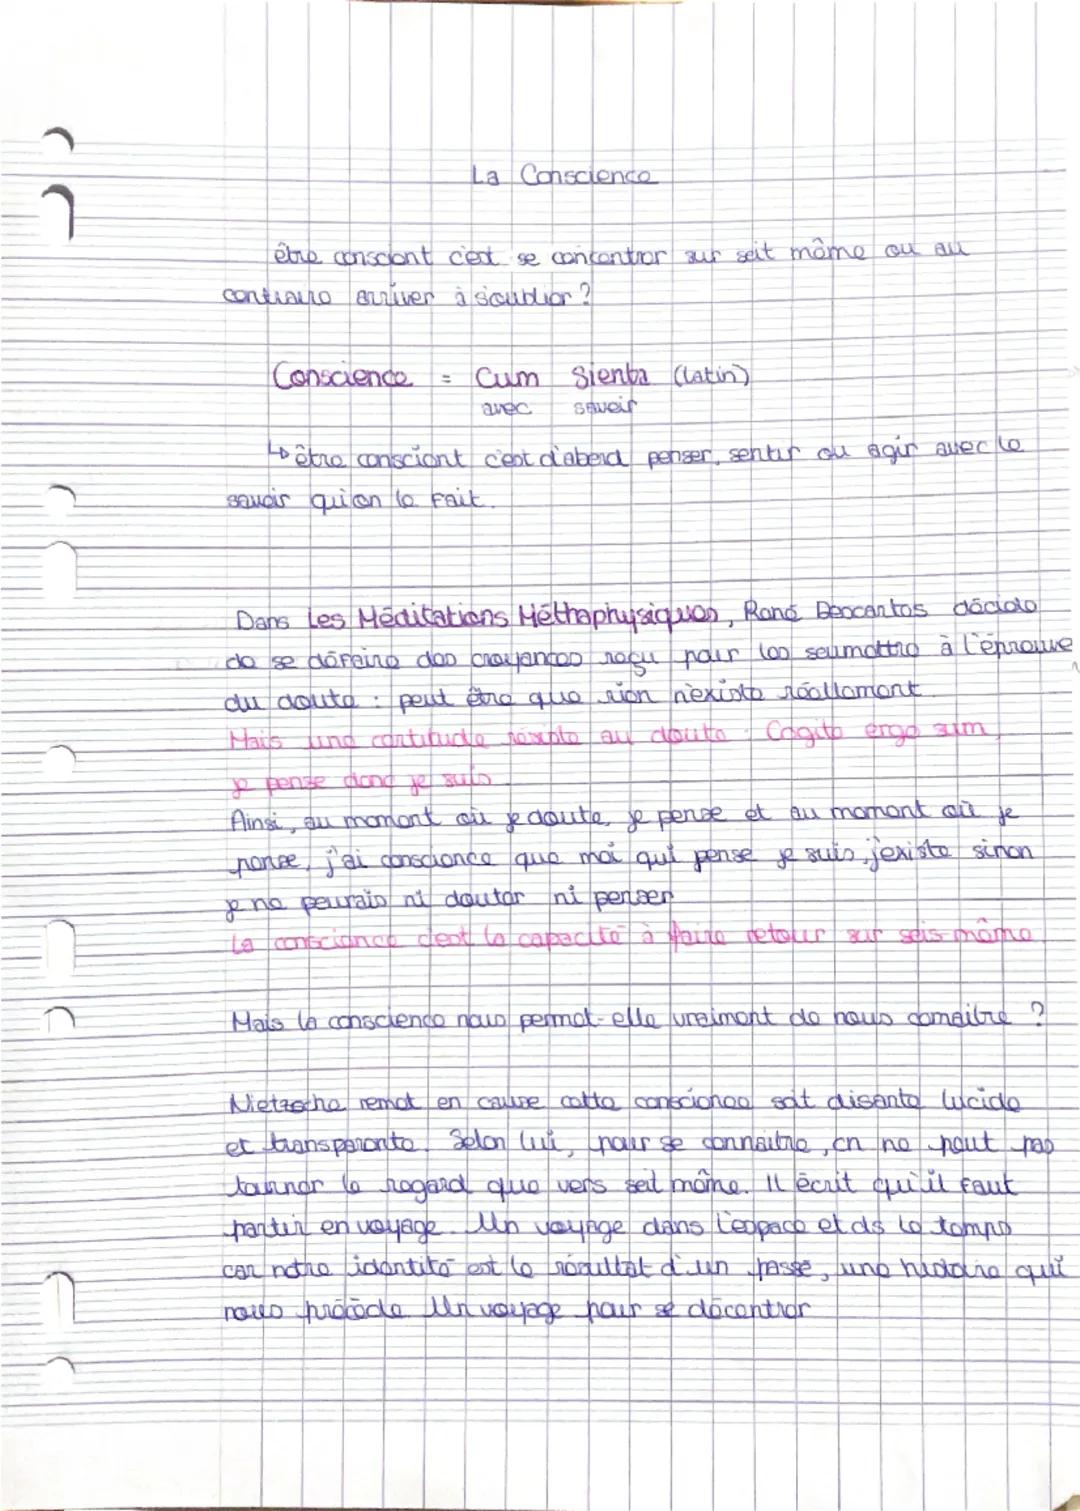 La Conscience
être conscient c'est se concentrer sur soit même ou au
contraire arriver à s'oublier ?
Conscience = Cum Sientia (Latin)
avec savoir
↳ être conscient c'est d'abord penser, sentir ou agir avec le
savoir qu'on le fait.
Dans Les Méditations Méthaphysiques, René Descartes décide
de se défaire des croyances reçu pour les soumettre à l'épreuve
du doute : peut être que rien n'existe réellement
Mais une certitude résiste au doute : Cogito ergo sum,
je pense donc je suis.
Ainsi, au moment où je doute, je pense et au moment où je
pense, j'ai conscience que moi qui pense je suis, j'existe sinon
je ne pourais ni douter ni penser
La conscience c'est la capacité à faire retour sur sois-même.
Mais la conscience nous permet-elle vraiment de nous connaitre ?
Nietzsche remet en cause cette conscience soit disante lucide
et transparente. Selon lui, pour se connaitre, on ne peut pas
tourner le regard que vers soit même. Il écrit qu'il faut
partir en voyage. Un voyage dans l'espace et ds le temps
car notre identité est le résultat d'un passé, une histoire qui
nous précède. Un voyage pour se décentrer